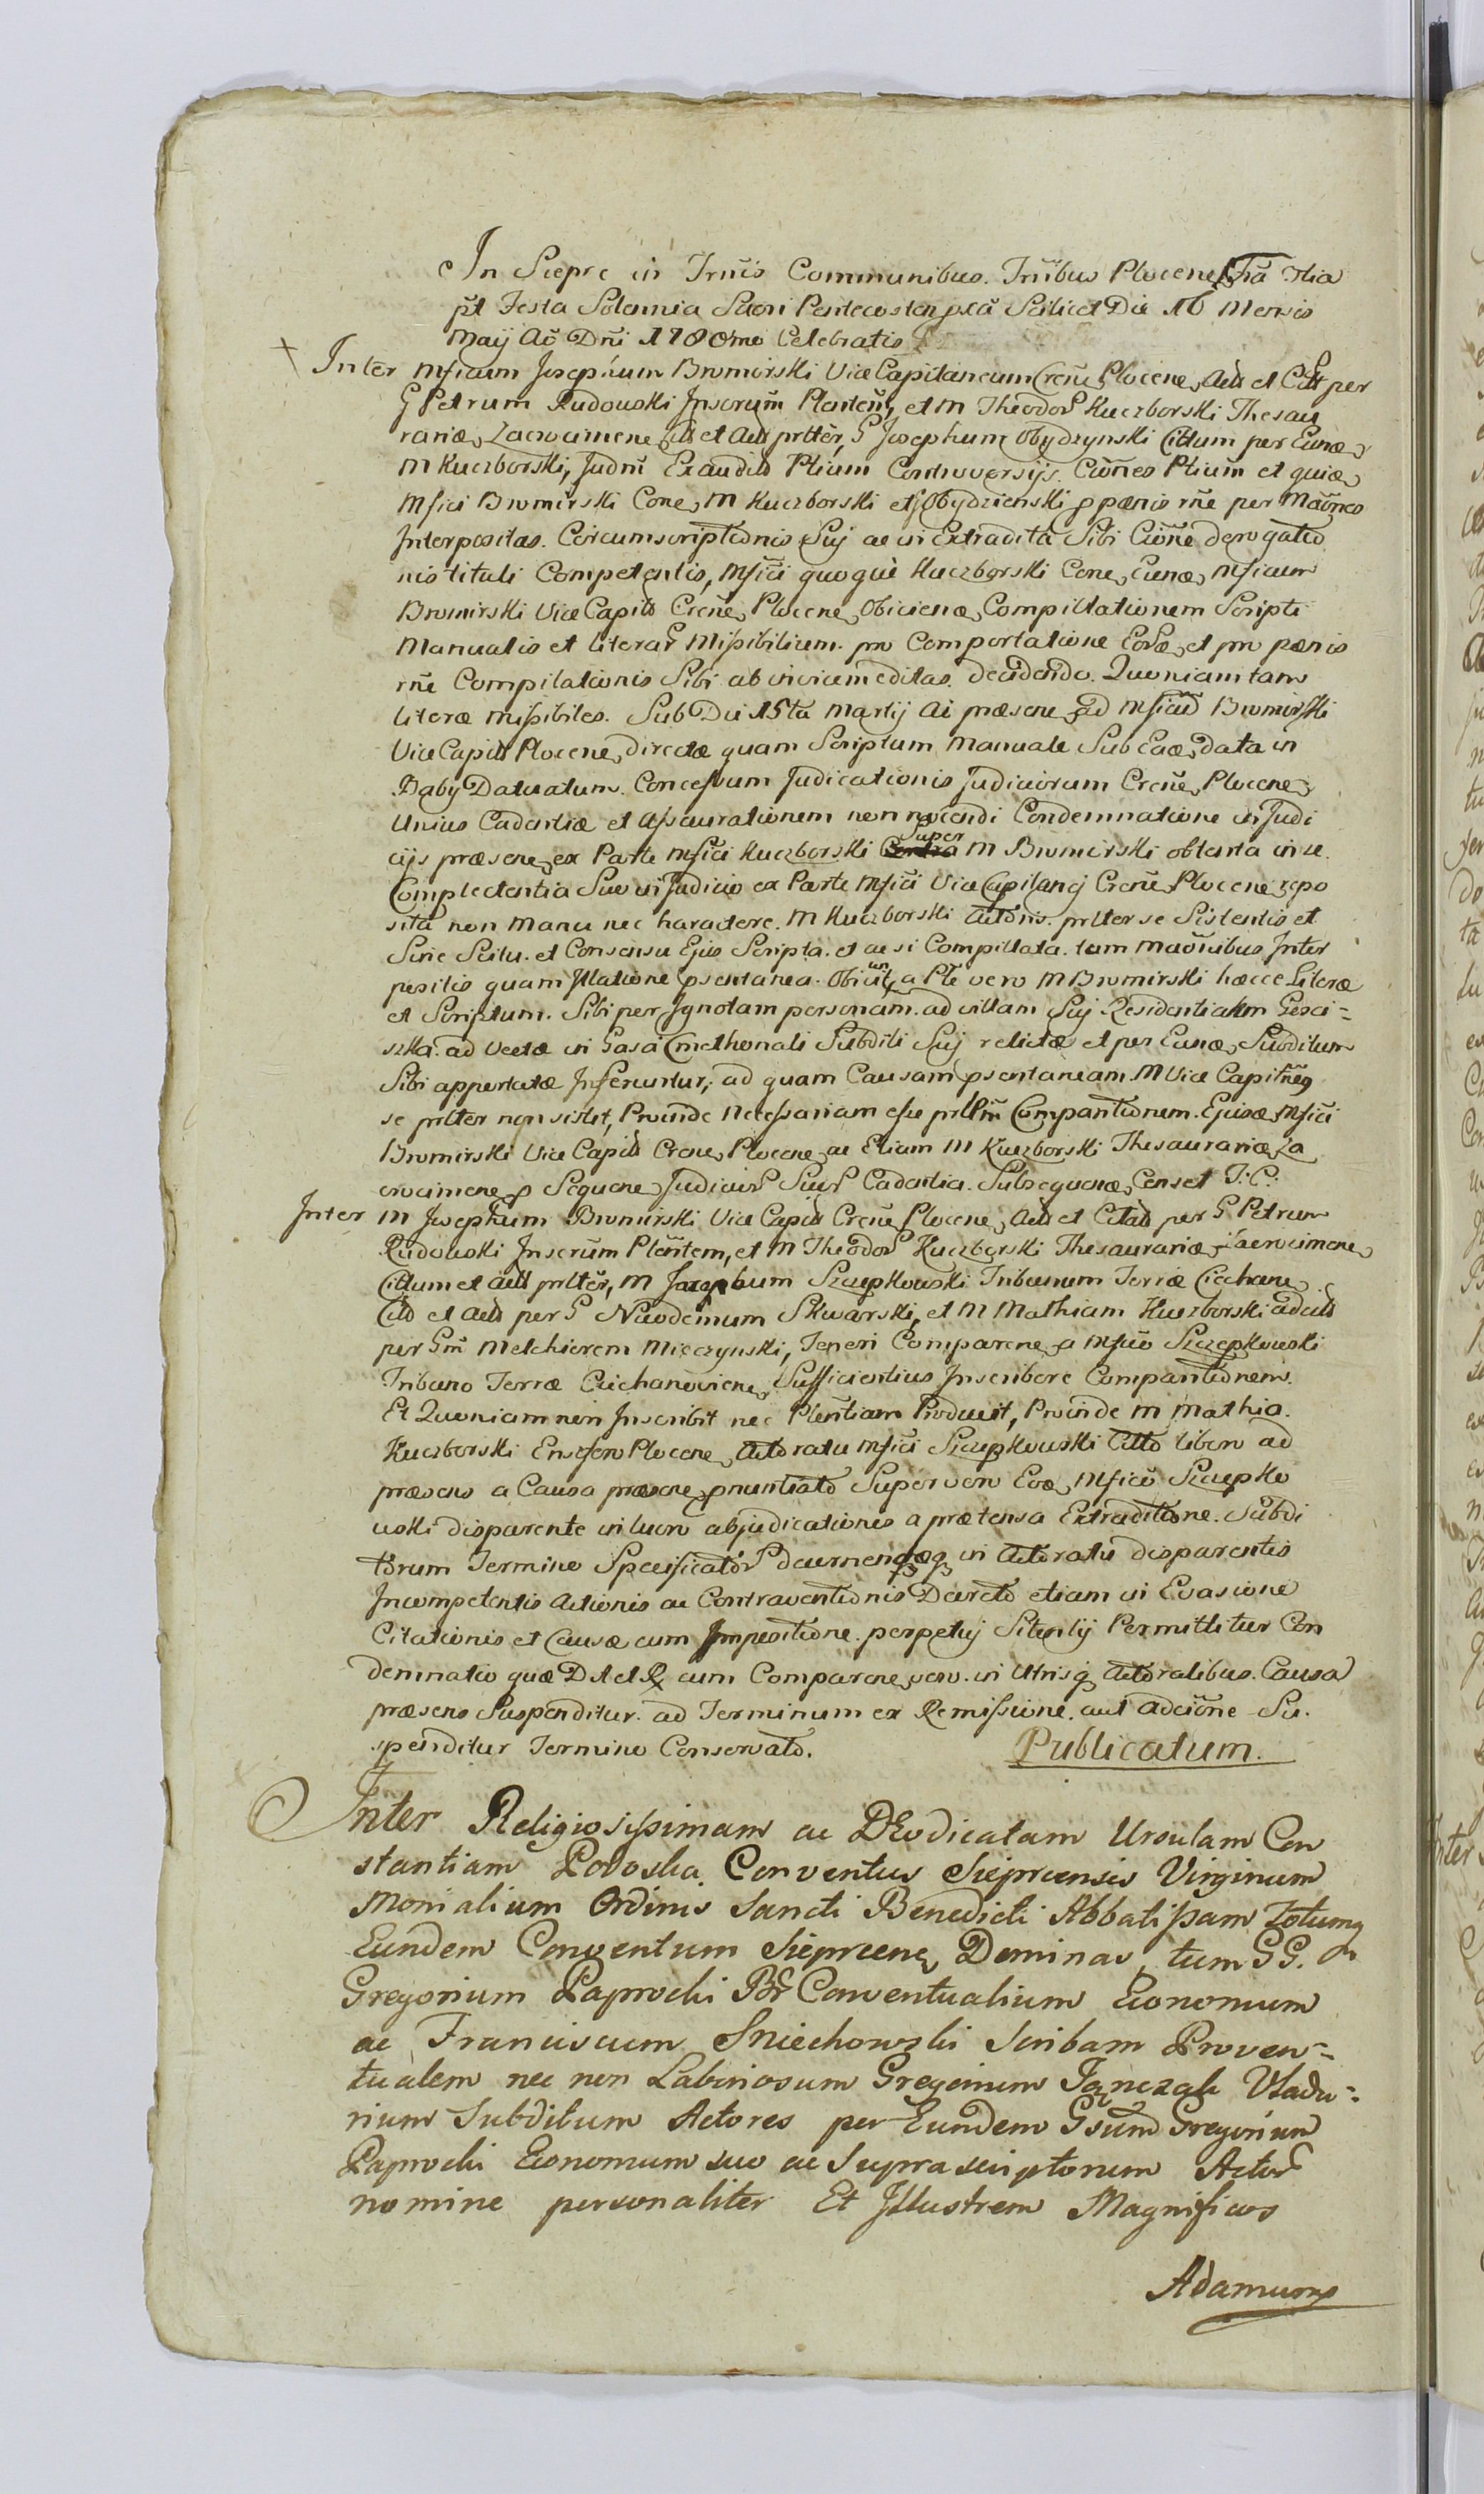 In Sieprc in Trnis Communibus. Tribus Plocene, Fia 3tia
pt Festa Solemnia Sacri Pentecosten pxa Scilicet Die 16 Mensis
Maij Ao Dni 1780mo Celebratis
Inter Mficum Josephum Bromirski Vice Capitaneum Crene, Plocene, Actt et Citt per
G Petrum Rudowski Inscrum Plentem, et M Theodor Kuczborski Thesau
rariae, Zacrocimene, Citt et Actt prlter, G Josephum Obydzynski Cittum per Eunde,
M Kuczborski, Judm Exauditis Ptium Controversijs. Ciones Ptium et quidem,
Mfici Bromirski Cone, M Kuczborski et Obydzienski p paenis rne per Maones
Interpositas. Circumscriptionis Suj ac in Extradita Sibi Cione derogatio
nis tituli Competentis, Mfici quoque Kuczborski Cone, Eunde, Mficum
Bromirski Vice Capitt Crene, Plocene, Obiciende, Compillationem Scripti
Manualis et literar Missibilium. pro Comportatione Eorde, et pro paenis
rne Compilationis Sibi ab invicem editas. decidendo. Quoniam tam
literae missibiles. Sub Die 15ta Martij Ai praesene, ad Mficum Bromirski
Vice Capitt Plocene, directae quam Scriptum Manuale Sub Eade, data in
Baby Datuatum. Concessum Judicationis Judiciorum Crene, Plocene,
Unius Cadentiae et Assecurationem non nocendi Condemnatione in Judi
cijs praesene, ex Parte Mfici Kuczborski Contra Super M Bromirski obtenta in se
Complectentia Suo in Judicio ex Parte Mfici Vice Capitanej Crene, Plocene, repo
sita non Manu nec haractere. M Kuczborski Actoris. prlter se Sistentis et
Sine Scitu. et Consensu Ejus Scripta. et ac si Compillata. tam maonibus Inter
positis quam Illatione psentanea. Obiciuntur, a Pte vero M Bromirski haecce Literae
et Scriptum. Sibi per Ignotam personam. ad villam Suj Residentialem Gesci-
szka. ad vectae in Casa Cmethonali Subditi Suj relictae, et per Eunde, Subditum
Sibi apportatae Inferuntur, ad quam Causam psentaneam M Vice Capitneus
se prlter non sistit, Proinde Necessariam esse prllm Comparitionem. Ejusde, Mfici
Bromirski Vice Capitt Crene, Plocene, ac Etiam M Kuczborski Thesaurariae, Za
crocimene, p Sequene, Judicior Suor Cadentia. Subsequende, Censet J: C:
Inter M Josephum Bromirski Vice Capitt Crene, Plocene, Actt et Citatt per G Petrum
Rudowski Inscrum Plentem, et M Theodor Kuczborski Thesaurariae, Zacrocimene,
Cittum et Actt prlter, M Josephum Szczepkowski Tribunum Terrae Ciechane,
Citt et Actt per G Nicodemum Skwarski, et M Mathiam Kuczborski adcitt
per Gm Melchiorem Mieczynski, Teneri Comparene, a Mfico Szczepkowski
Tribuno Terrae Ciechanoviene, Sufficientius Inscribere Comparitionem.
Et Quoniam non Inscribit nec Plentiam Produxit, Proinde M Mathia.
Kuczborski Ensifero Plocene, Actoratu Mfici Szczepkowski Citto libero ad
praesens a Causa praesene, pnuntiato Super vero Eode, Mfico Szczepko
wski disparente in lucro abjudicationis a praetensa Extraditione. Subdi
torum Termino Specificator decernendaeq in Actoratu disparentis
Incompetentis Actionis ac Contraventionis Decreto etiam in Evasione
Citationis et Causae cum Impositione. perpetuj Silentij Permittitur Con
demnatio quae D A et R cum Comparene, vero. in Utrisq Actoratibus. Causa
praesens Suspenditur. ad Terminum ex Remissione. aut adcione Su.
spenditur Termino Conservato.
Publicatum.
Inter Religiosissimam ac DEodicatam Ursulam Con
stantiam Podoska. Conventus Sieprcensis Virginum
Monialium Ordinis Sancti Benedicti Abbatissam Totumq
Eundem Conventum Sieprcene, Dominas, tum GG.
Gregorium Paprocki Br Conventualium Economum
ac Franciscum Sniechowski Scribam Proven-
tualem nec non Laboriosum Gregorium Janczak Vladu-
rium Subditum Actores per Eundem Gsum Gregorium
Paprocki Economum suo ac Suprascriptorum Actor
nomine personaliter Et Illustrem Magnificos
Adamum